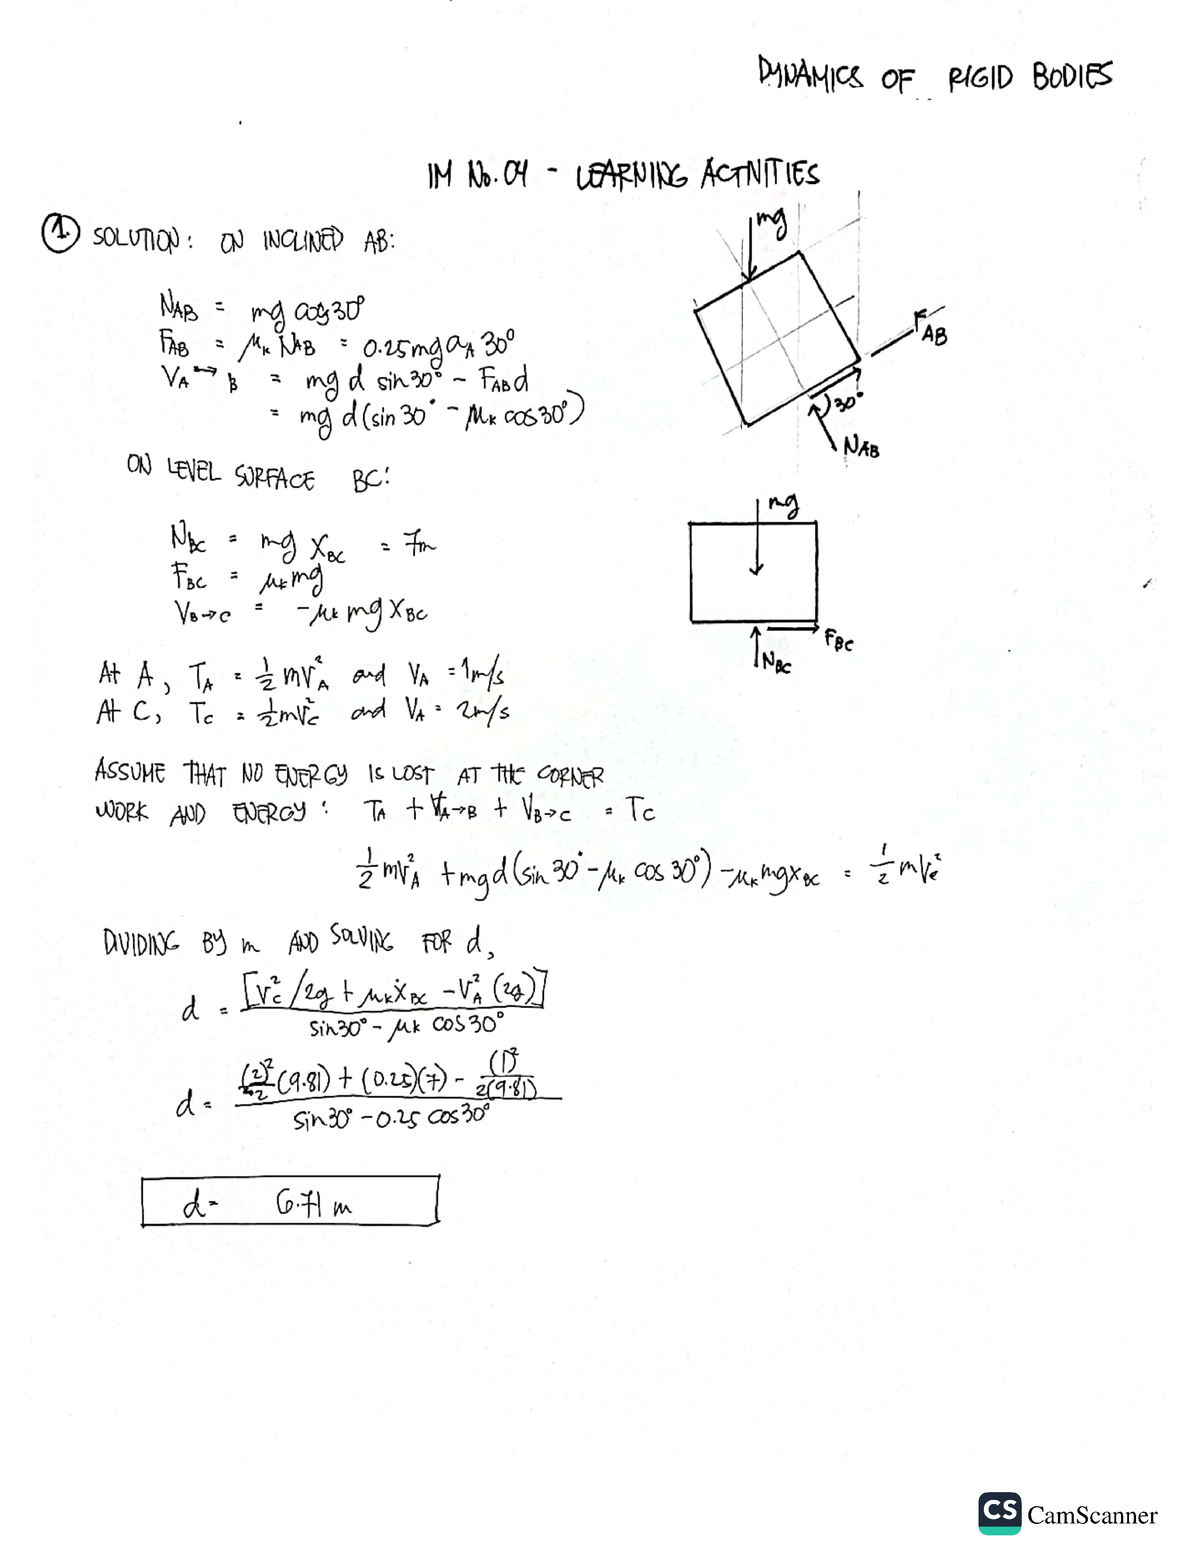 DYNAMICS OF RIGID BODIES
IM No. 04 - LEARNING ACTIVITIES
1. SOLUTION: ON INCLINED AB:
mg
F_AB
30°
N_AB
N_AB = mg cos 30°
F_AB = μk N_AB = 0.25mg a_A 30°
V_A→B = mg d sin 30° - F_AB d
= mg d (sin 30° - μk cos 30°)
ON LEVEL SURFACE BC:
mg
F_BC
N_BC
N_BC = mg X_BC = 7m
F_BC = μk mg
V_B→C = -μk mg X_BC
At A, T_A = 1/2 mV_A² and V_A = 1m/s
At C, T_C = 1/2 mV_C² and V_A = 2m/s
ASSUME THAT NO ENERGY IS LOST AT THE CORNER
WORK AND ENERGY: T_A + V_A→B + V_B→C = T_C
1/2 mV_A² + mgd (sin 30° - μk cos 30°) - μk mg x_BC = 1/2 mV_C²
DIVIDING BY m AND SOLVING FOR d,
d = [V_C² /2g + μk X_BC - V_A² (2g)] / sin30° - μk cos 30°
d = (2)²/2 (9.81) + (0.25)(7) - (1)²/2(9.81) / sin 30° - 0.25 cos 30°
d = 6.71 m
CS CamScanner